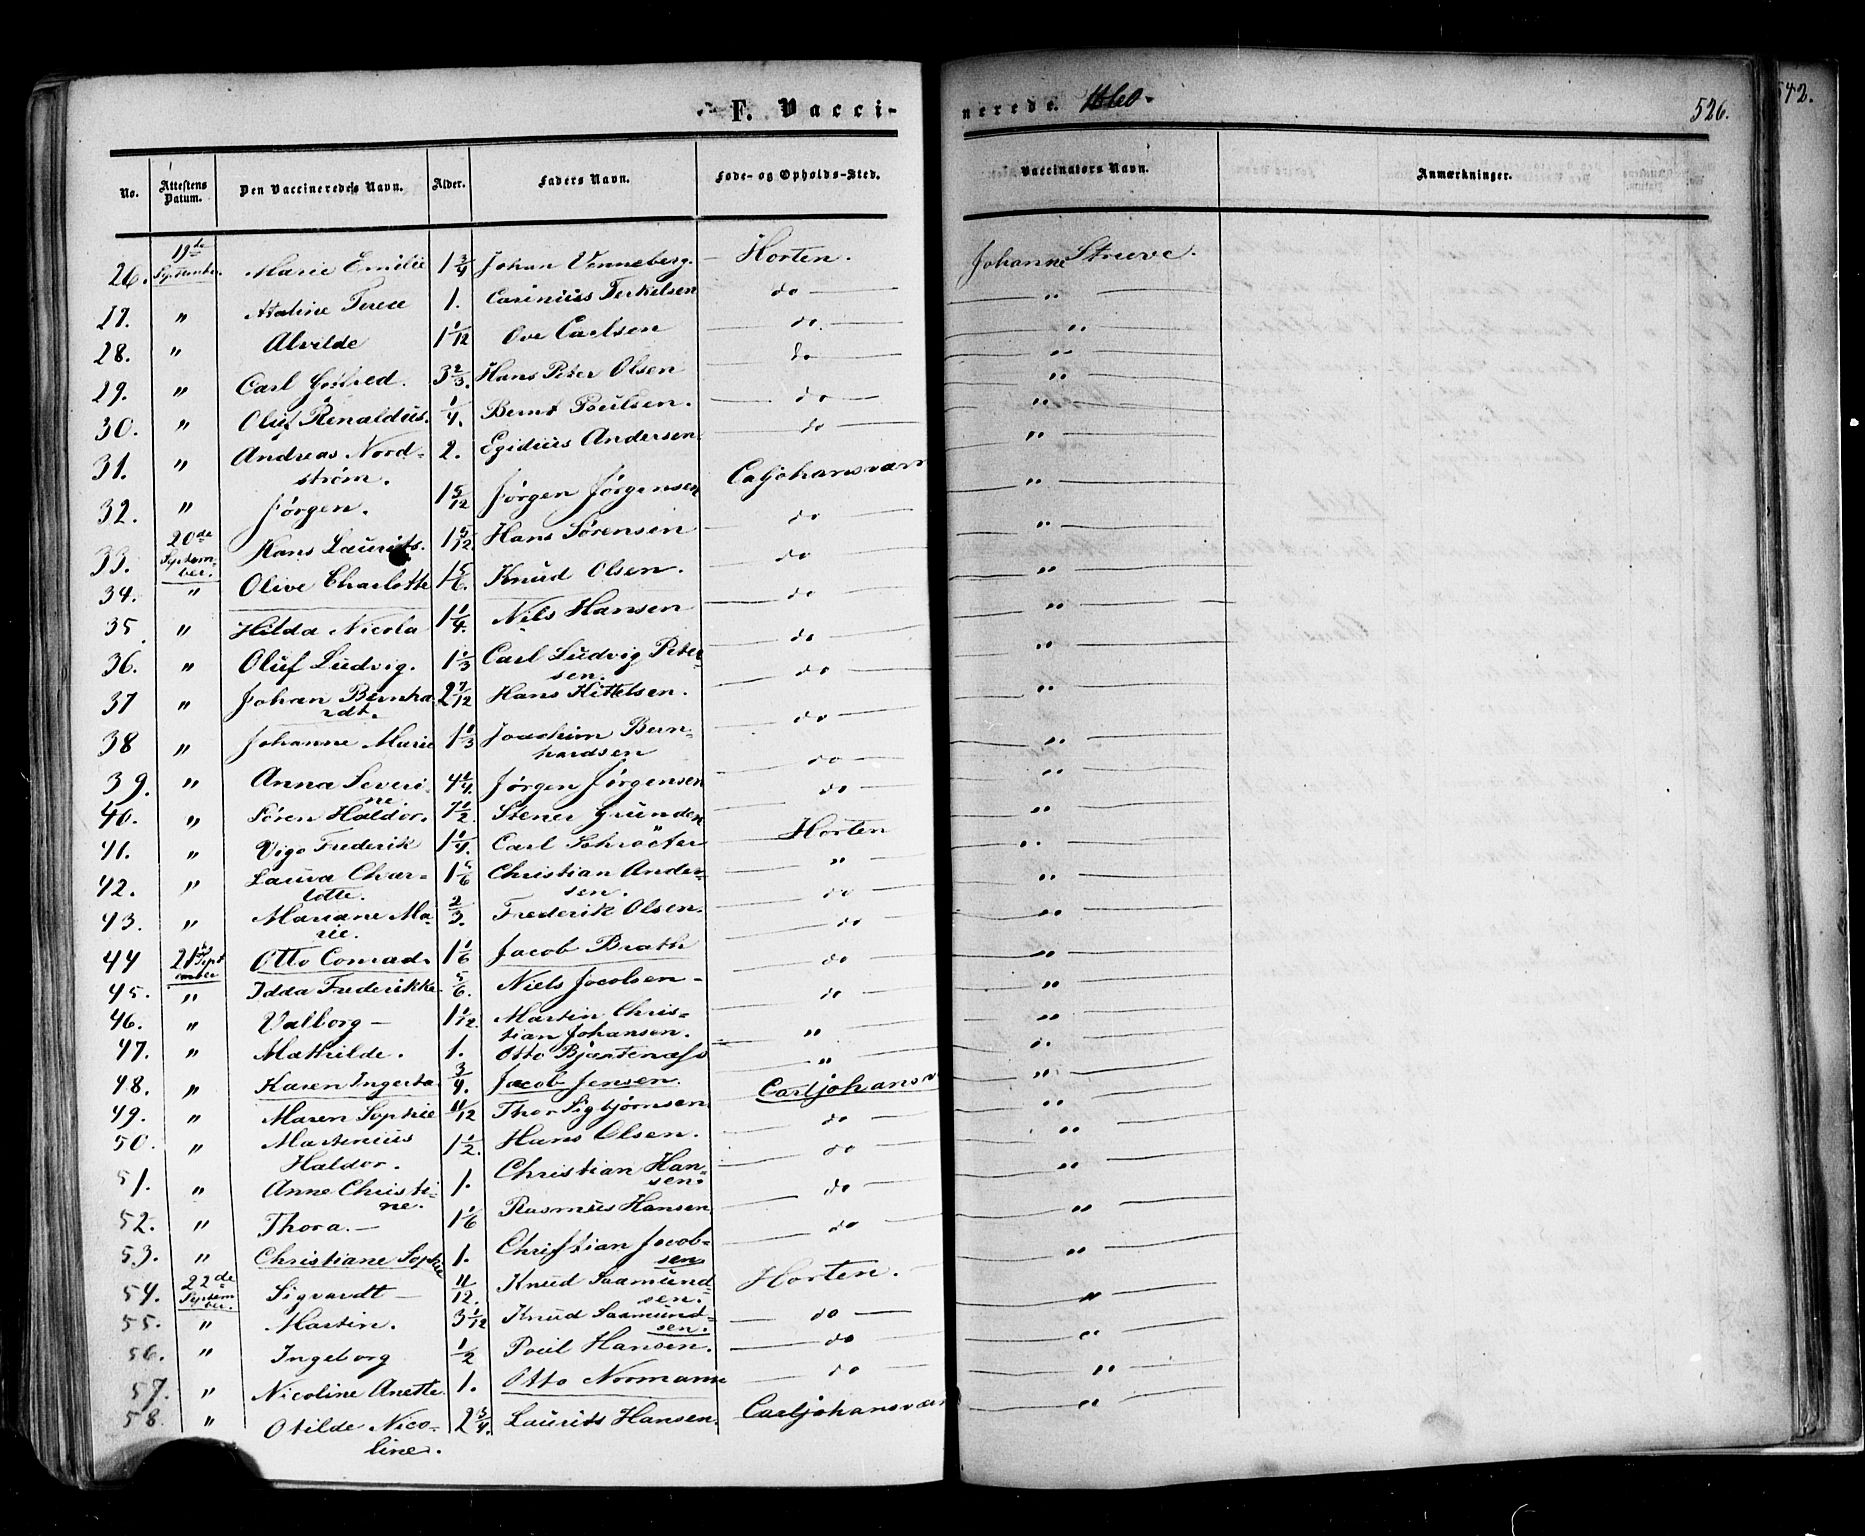 F. Vacci-
nerede. 1860.
526.
542.
No. Attestens Datum. Den Vaccineredes Navn. Alder. Faders Navn. Føde- og Opholds-Sted. Vaccinators Navn. Anmærkninger.
26. 19de September. Marie Emilie 1 3/4 Johan Venneberg. Horten. Johanne Strüve.
27. " Terese 1. Carinius Terkelsen do "
28. " Alvilde 1 1/12 Ove Carlsen do. "
29. " Carl Gotfred. 3 2/3. Hans Peter Olsen do "
30. " Oluf Renaldus. 1/4. Bernt Poulsen. do "
31. " Andreas Nord- 2. Egidius Andersen. do "
strøm.
32. " Jørgen. 1 5/12 Jørgen Jørgensen Caljohansværn "
33. 20de September. Hans Laurits. 1 5/12. Hans Sørensen do "
34. " Olive Charlotte 1 5/6. Knud Olsen. do "
35 " Hilda Nicola 1 1/4. Nils Hansen do "
36. " Oluf Ludvig. 1 1/3 Carl Ludvig Peter- do "
sen.
37 " Johan Bernha- 2 7/12 Hans Kittelsen. do "
rdt.
38 " Johanne Marie 1 1/3 Joachim Bern- do "
hardsen
39. " Anna Severi- 4 1/4. Jørgen Jørgensen do "
ne
40. " Søren Haldor. 7 1/2. Stener Grunden do "
41. " Vigo Frederik 1 1/4. Carl Schröeter Horten "
42. " Laura Char- 1 5/6 Christian Ander- " "
lotte. sen.
43. " Mariane Ma- 2/3. Frederik Olsen. do "
rie.
44 21de September Otto Conrad. 1 1/6 Jacob Brath do "
45. " Idda Frederikke 5/6. Niels Jacobsen - do "
46. " Valborg - 1 1/12. Martin Chris- do "
tian Johansen.
47. " Mathilde. 1. Otto Bjertenæss " "
48. " Karen 3/4. Jacob Jensen. " "
49. " Maren Sophie 11/12 Thor Sigbjørnsen Carljohansv "
50. " Martinius 1 1/2. Hans Olsen. do "
Haldor.
51. " Anne Christi- 1. Christian Han- do "
ne. sen.
52. " Thora. - 1 1/6 Rasmus Hansen do "
53. " Christiane Sophie 1. Christian Jacob- do "
sen
54. 22de September. Sigvardt - 11/12. Knud Saamund- Horten. "
sen.
55. " Martin. 3 1/12 Knud Saamund- do "
sen.
56. " Ingeborg 1/2 Poul Hansen. do "
57. " Nicoline Anette. 1. Otto Normann do "
58. " Otilde Nico- 2 3/4. Laurits Hansen. Carljohansvær "
line.